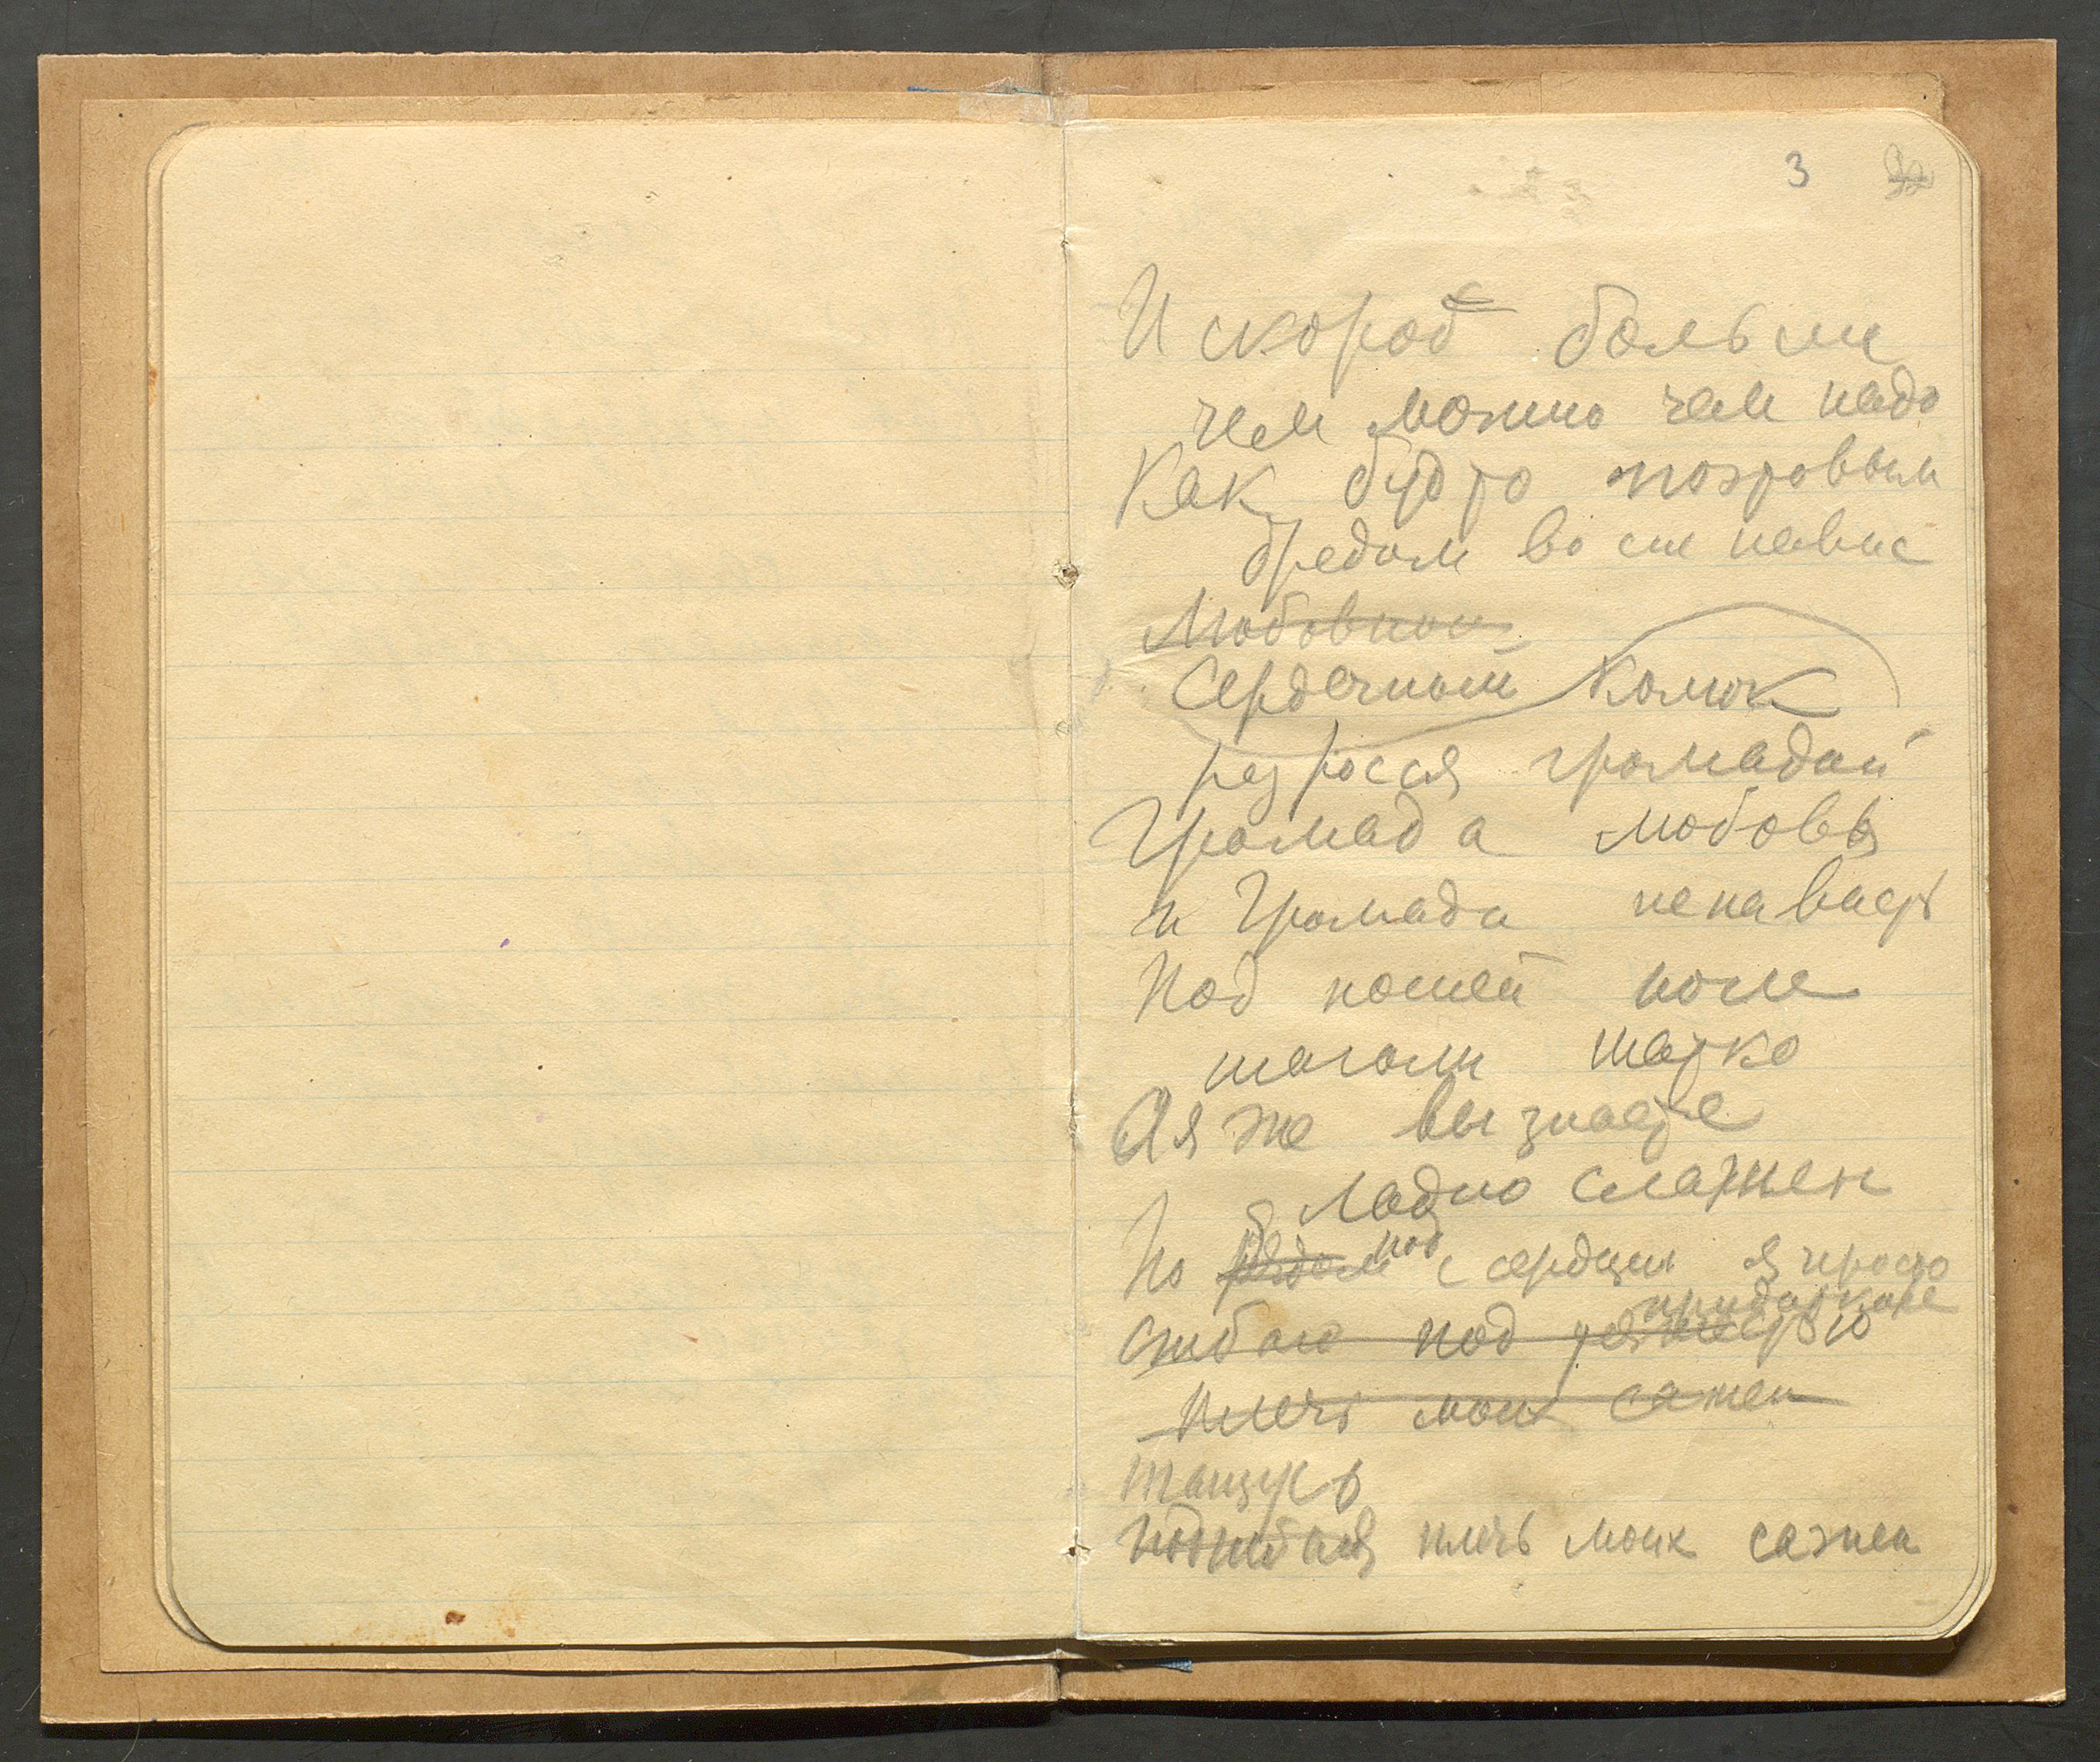 3
И скороб больше
чем можно чем надо
Как будто поэтовым
бредом во сне навис
Любовный
Сердечный комок
разросся громадой
Громада любовь
и Громада ненависть
Под ношей ноги
шагали шатко
А я же вы знаете
ладно слажен
Но рядом под с сердцем я просто
придатком
сгибаю под тяжестью
плечь моих сажен
тащусь
подгибая плечь моих сажен